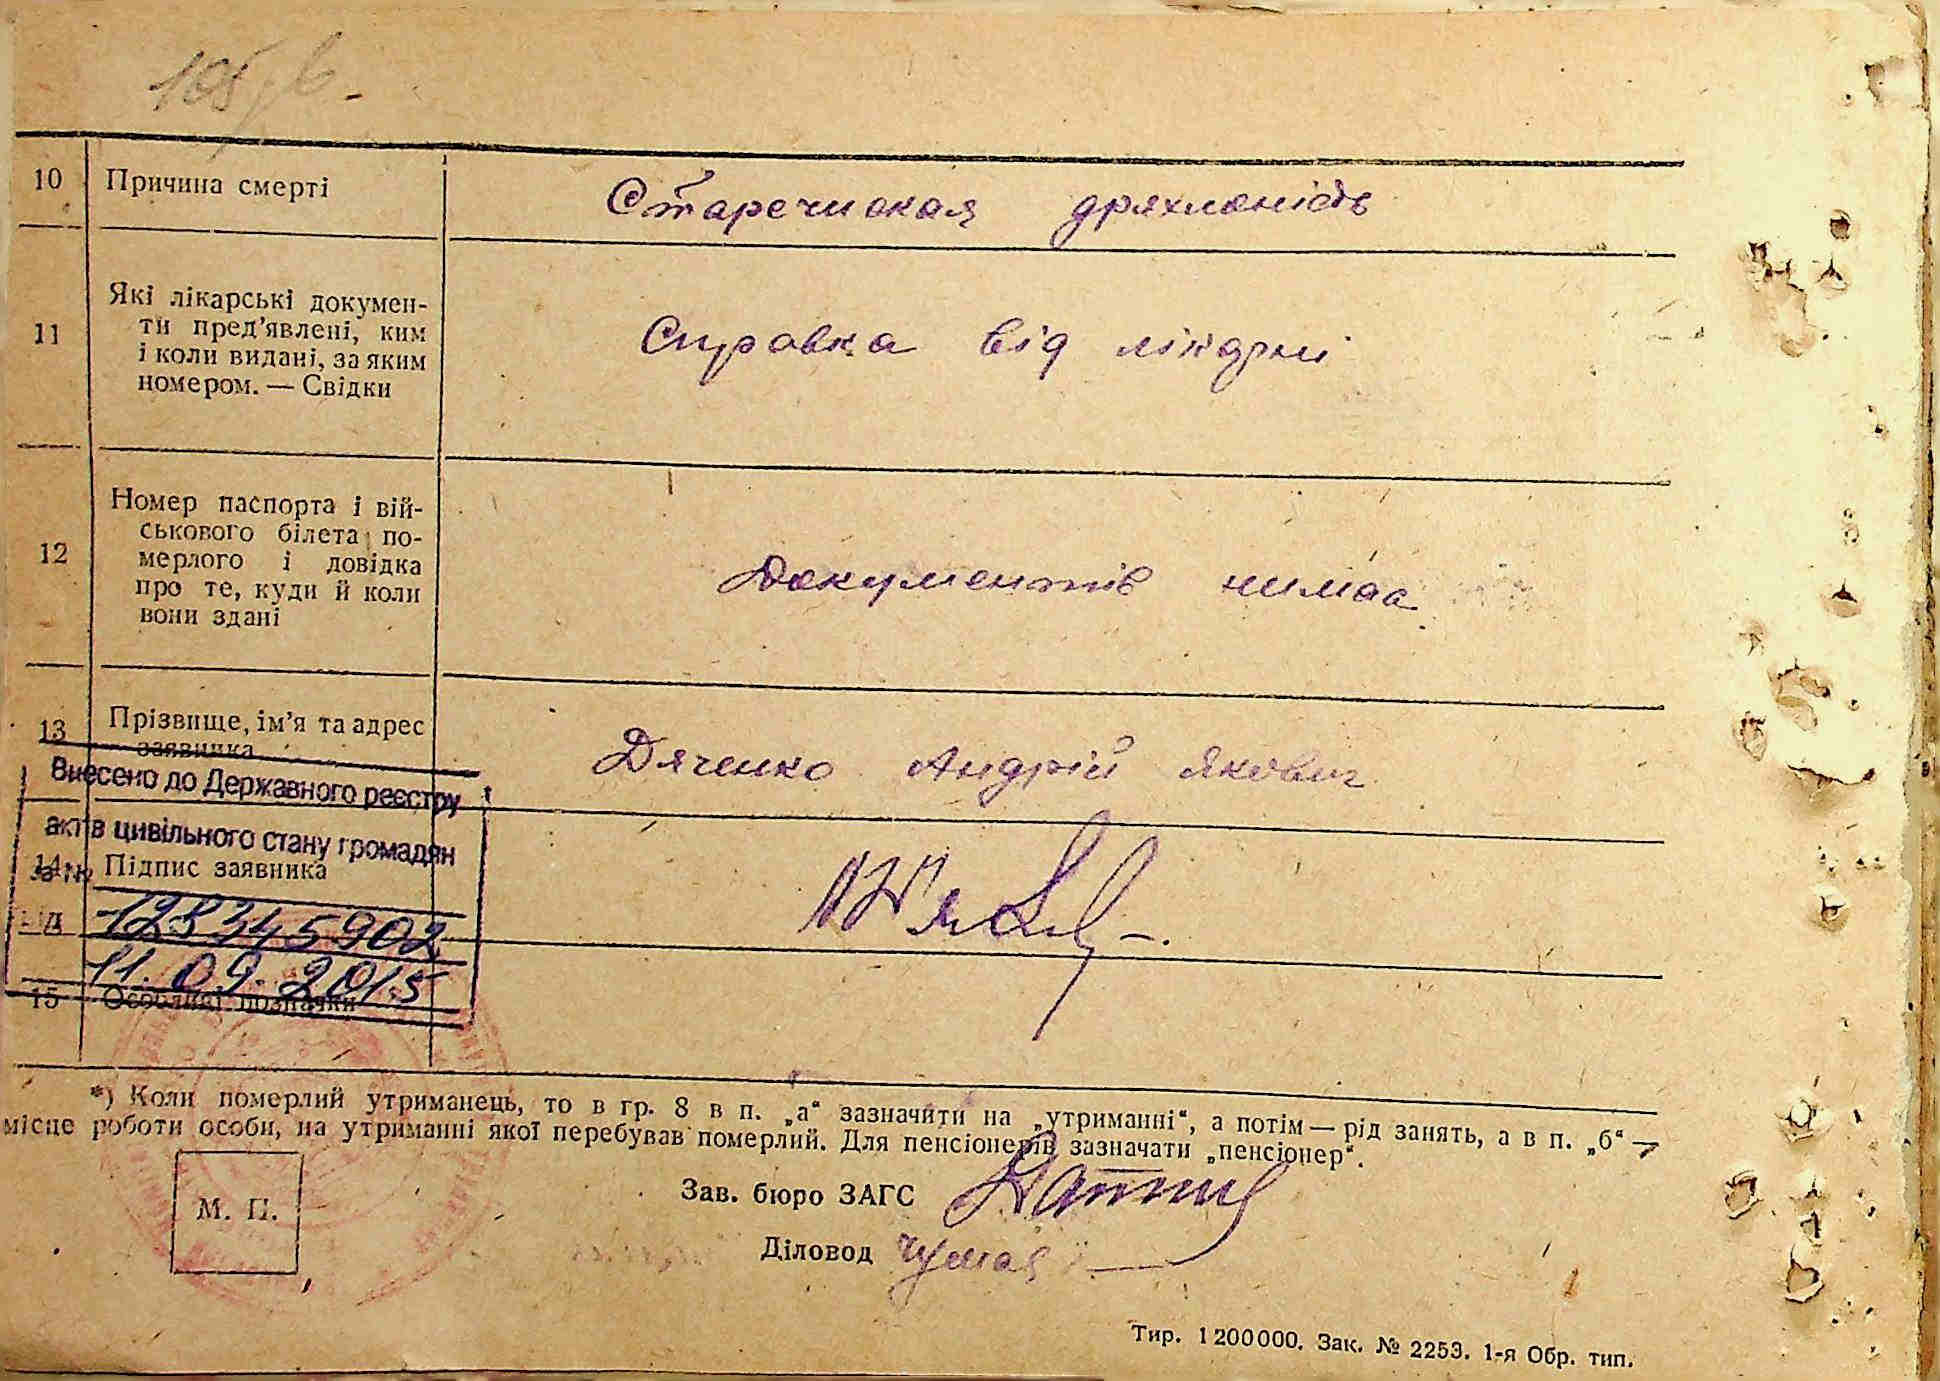 105
10 Причина смерті Старечиская дряхлоність
11 Які лікарські докумен-
ти пред'явлені, ким
і коли видані, за яким
номером. — Свідки
Справка від лікарні
12 Номер паспорта і вій-
ськового білета по-
мерлого і довідка
про те, куди й коли
вони здані
Документів нимаа
13 Прізвище, ім'я та адрес
заявника
Дяченко Андрій Якович
Внесено до Державного реєстру
актів цивільного стану громадян
14 Підпис заявника
за №
від 128345902
11.09.2015
15 Особливі позначки
*) Коли померлий утриманець, то в гр. 8 в п. „а“ зазначити на „утриманні“, а потім — рід занять, а в п. „б“ —
місце роботи особи, на утриманні якої перебував померлий. Для пенсіонерів зазначати „пенсіонер“.
М. П.
Зав. бюро ЗАГС
Діловод
Тир. 1200000. Зак. № 2253. 1-я Обр. тип.